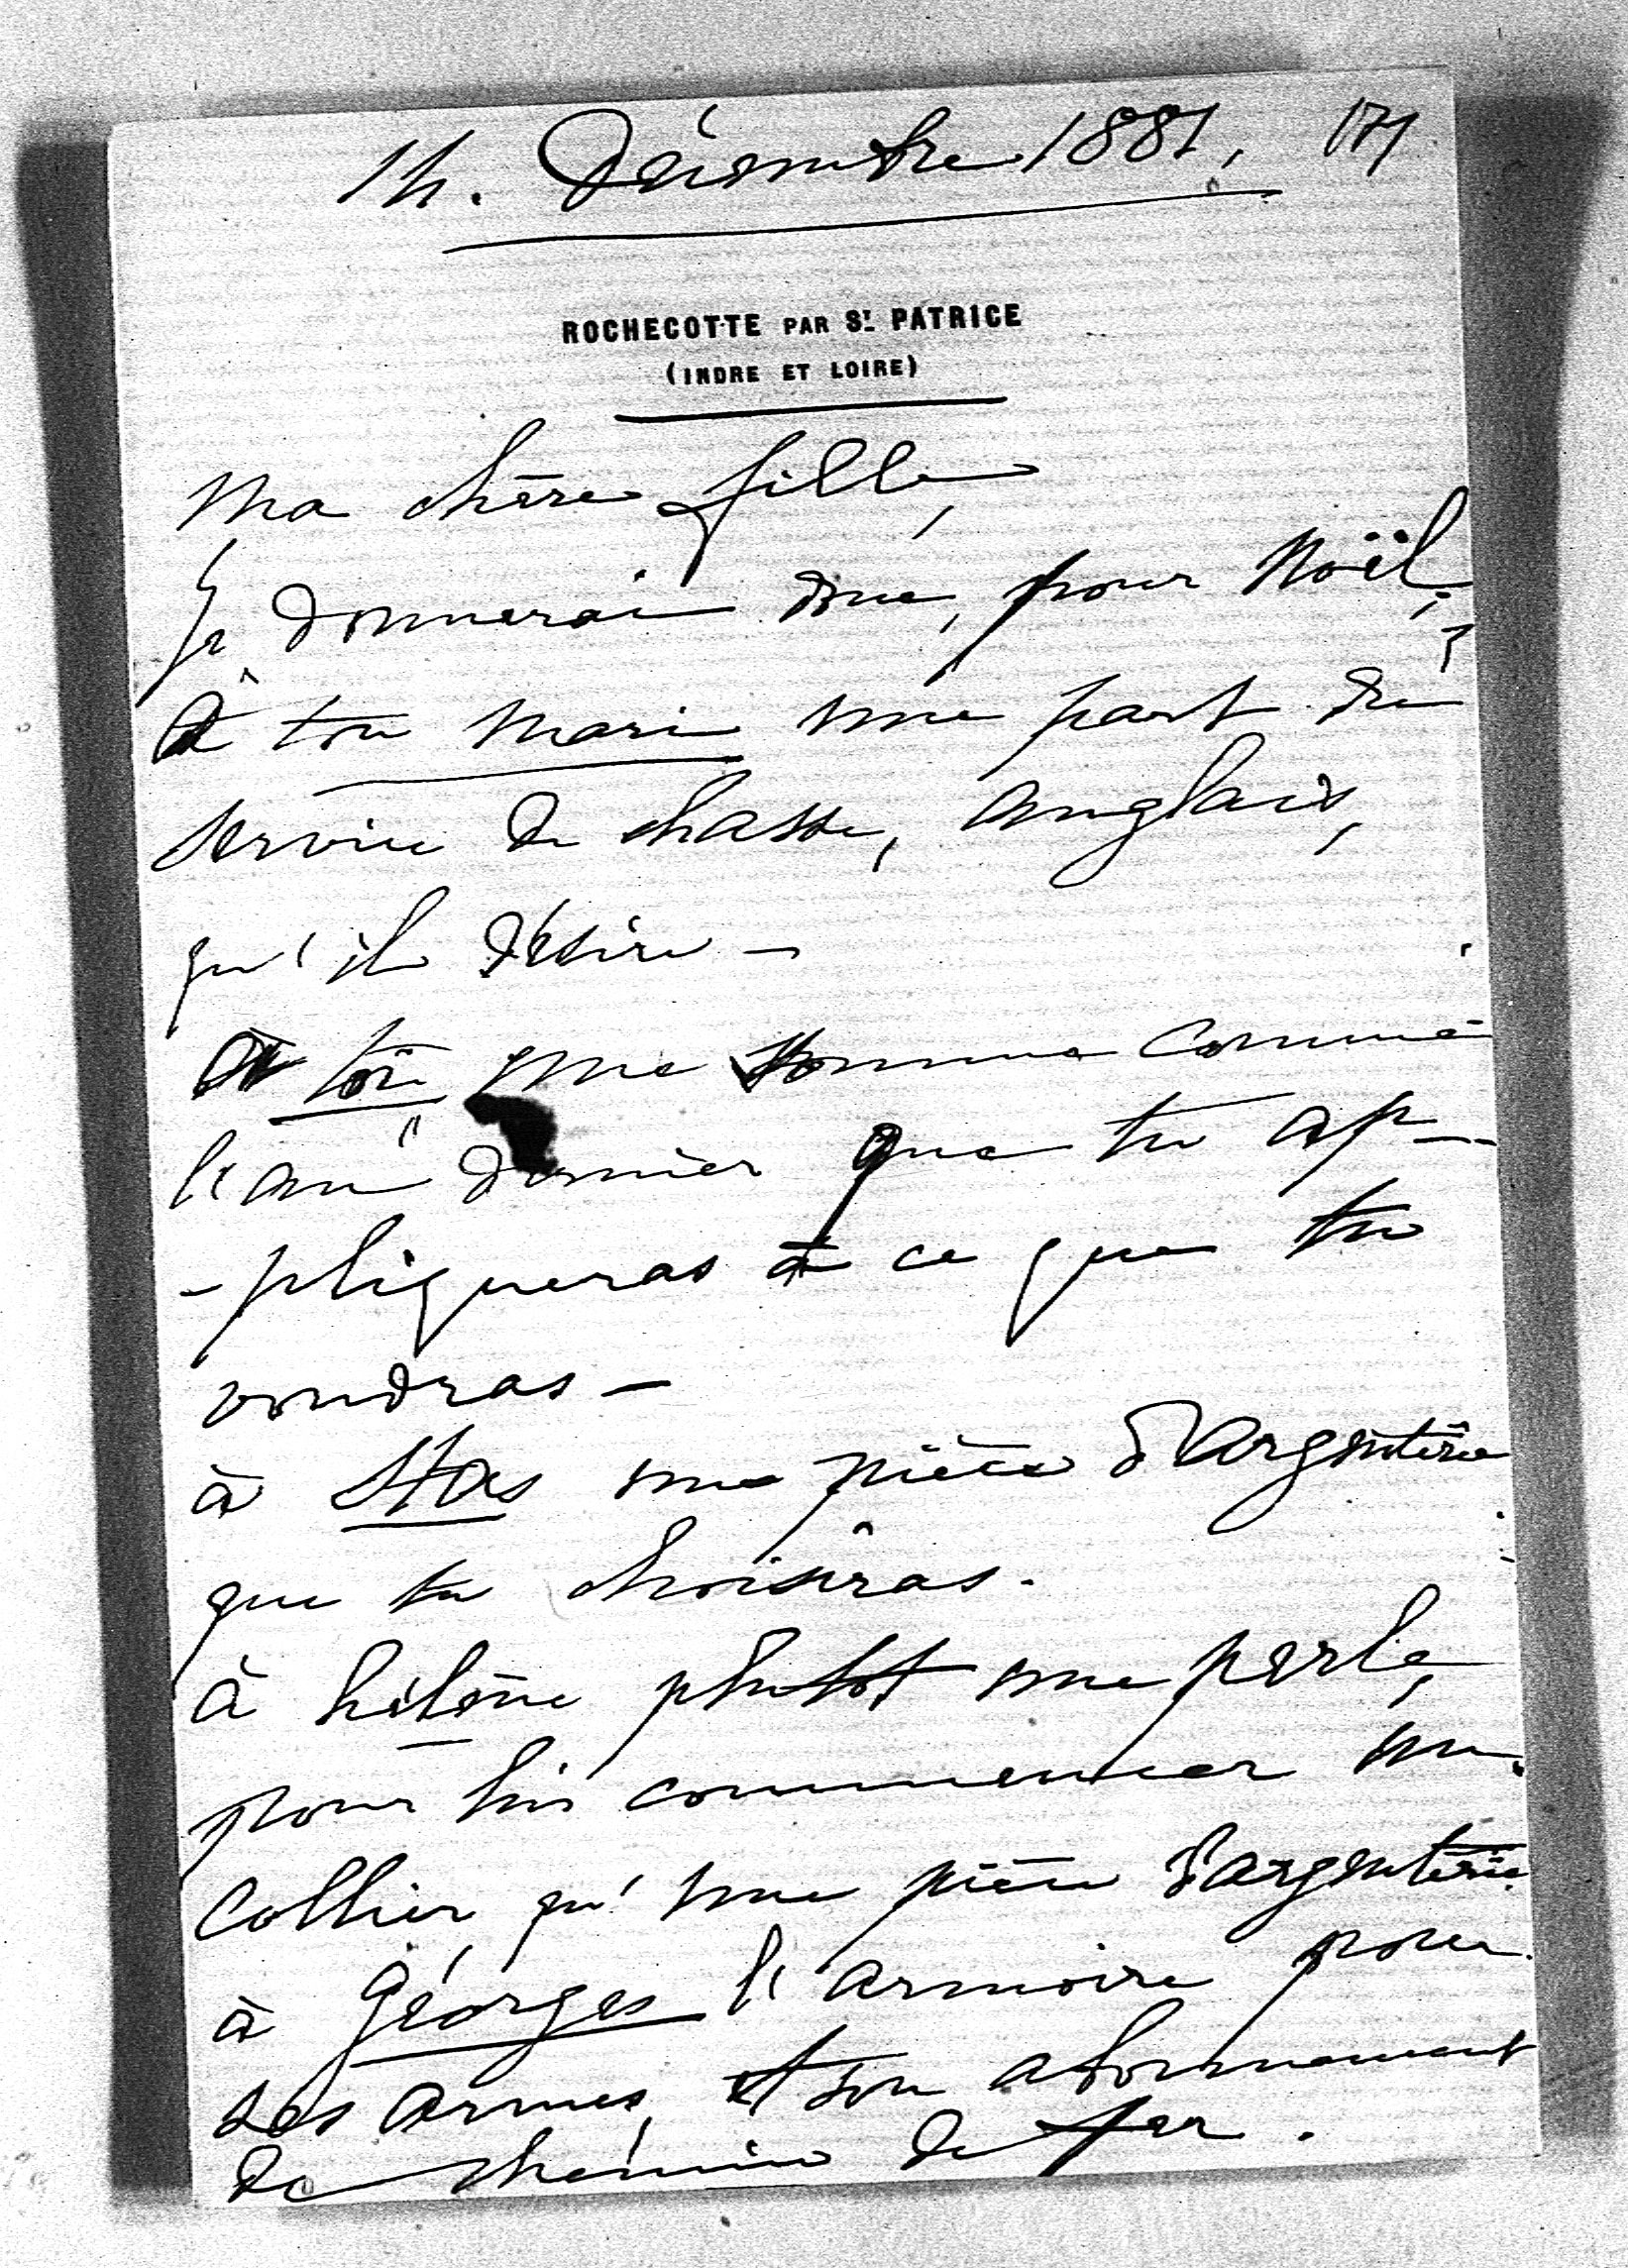 14. Décembre 1881, 171
ROCHECOTTE PAR ST. PATRICE
(INDRE ET LOIRE)
Ma chère fille,
Je donnerai donc, pour Noël,
à ton mari une part du
service de chasse, anglais,
qu'il désire –
à toi une somme comme
l'an dernier que tu ap-
-pliqueras à ce que tu
voudras –
à Stas une pièce d'argenterie
que tu choisiras.
à hélène plutot une perle,
pour lui commencer un
collier, qu'une pièce d'argenterie
à Géorges l'armoire pour
ses armes, et son abonnement
de chemin de fer.